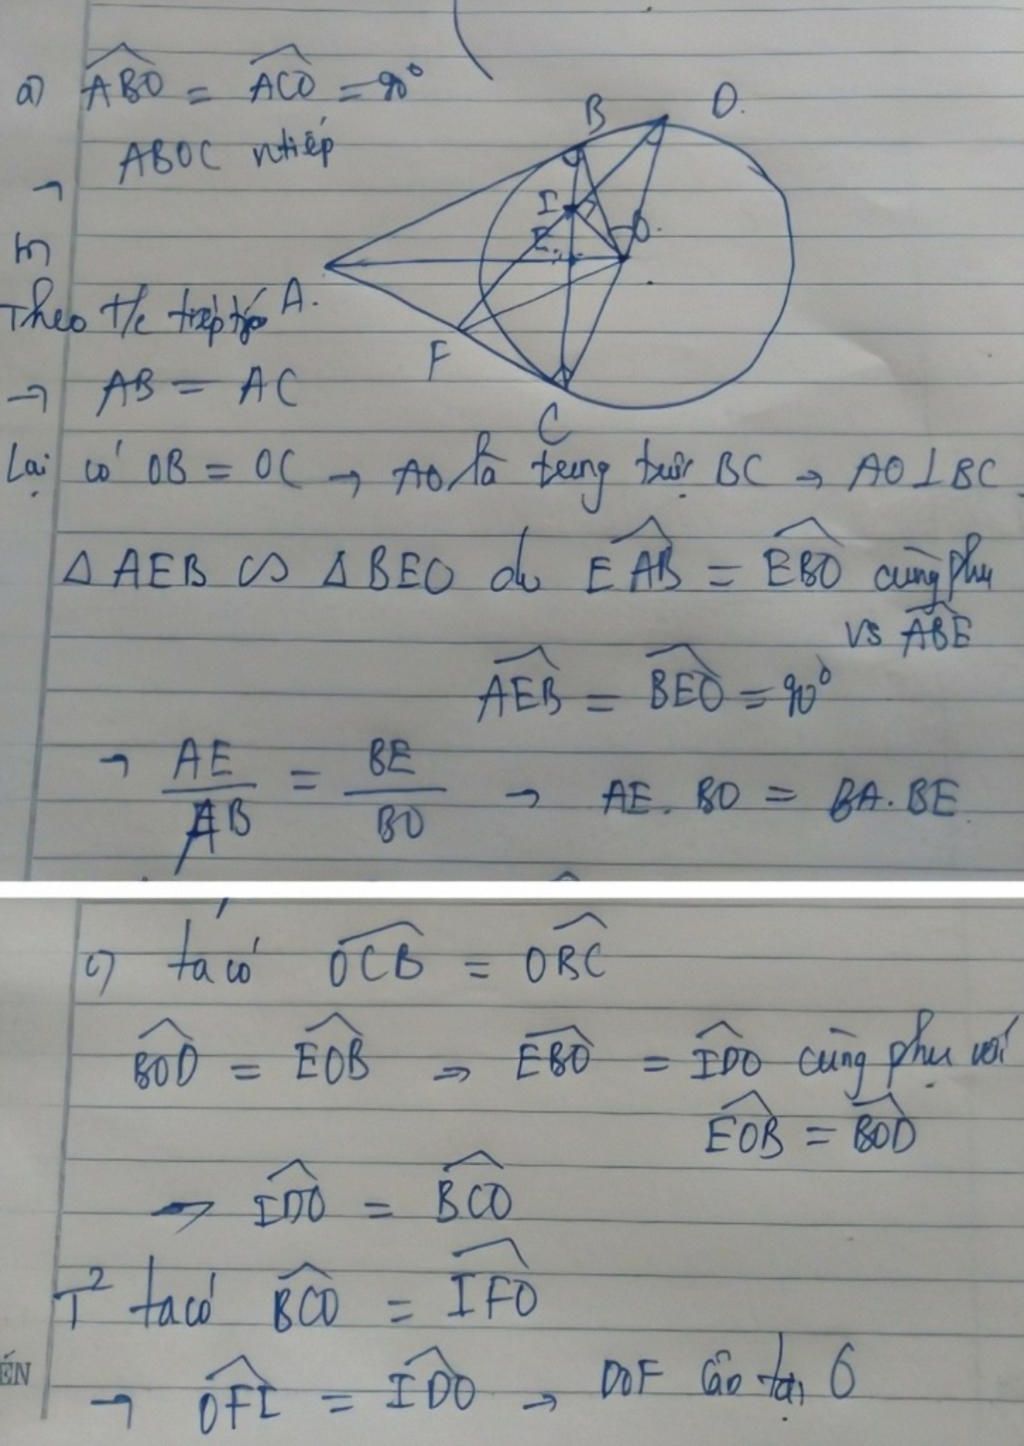 a) ABO = ACO = 90°
ABOC ntiếp
→
b)
Theo t/c tiếp tyến
→ AB = AC
B D.
I
E O.
A.
F
C
Lại có OB = OC → AO là trung trực BC → AO ⊥ BC
△AEB ∽ △BEO do EAB = EBO cùng phụ
vs ABE
AEB = BEO = 90°
→ AE/AB = BE/BO → AE. BO = BA.BE
c) ta có OCB = OBC
BOD = EOB ⇒ EBO = IDO cùng phụ với
EOB = BOD
→ IDO = BCO
T² ta có BCO = IFO
ẾN
→ OFI = IDO → DOF cân tại O